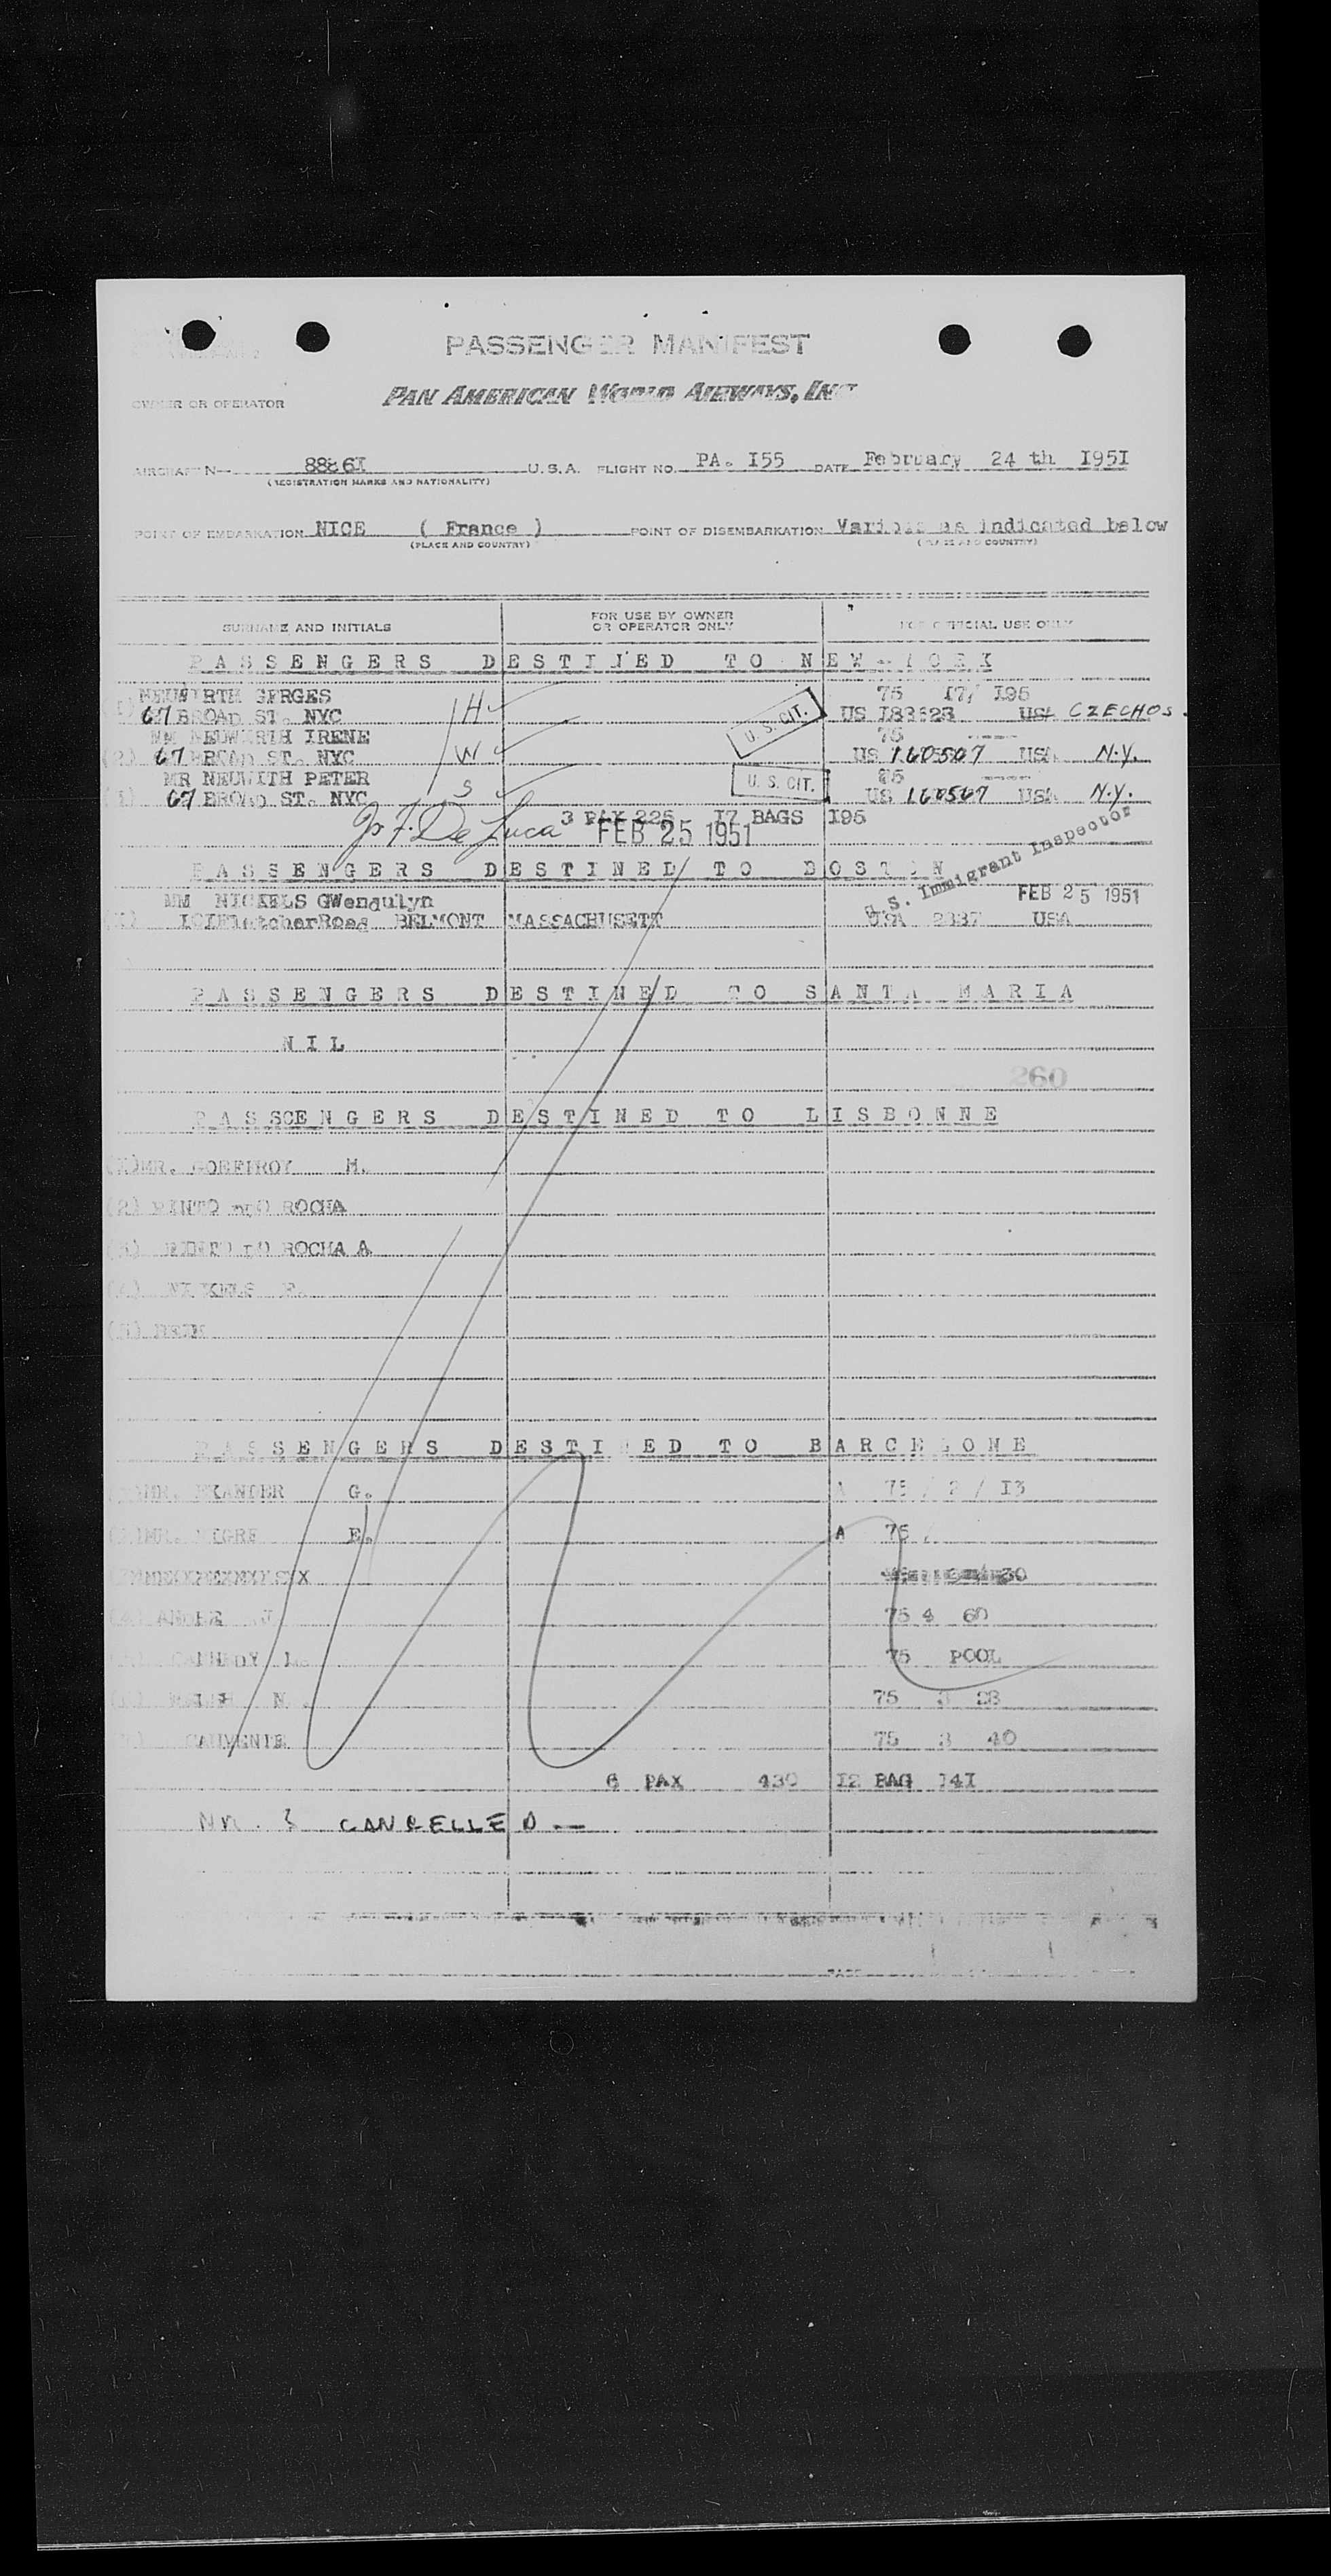 PASSENGER MANIFEST
OWNER OR OPERATOR PAN AMERICAN WORLD AIRWAYS, INC.
AIRCRAFT N- 8886I U.S.A. FLIGHT NO. PA. I55 DATE February 24 th I95I
(REGISTRATION MARKS AND NATIONALITY)
POINT OF EMBARKATION NICE ( France ) POINT OF DISEMBARKATION Various as indicated below
(PLACE AND COUNTRY) (PLACE AND COUNTRY)
SURNAME AND INITIALS FOR USE BY OWNER OR OPERATOR ONLY FOR OFFICIAL USE ONLY
PASSENGERS DESTINED TO NEW-YORK
NEUWIRTH GERGES 75 I7/ I95
67 BROAD ST. NYC H U.S. CIT. US USA CZECHOS.
MM NEUWIRTH IRENE 75 ----
(2) 67 BROAD ST. NYC W US 160507 USA N.Y.
MR NEUWITH PETER ----
67 BROAD ST. NYC S U.S. CIT. US 160507 USA N.Y.
3 PAX 226 I7 BAGS I95
Jo F. De Luca FEB 25 1951
U.S. Immigrant Inspector
PASSENGERS DESTINED TO BOSTON
MM NICKELS GWendulyn FEB 25 1951
IOIFletcherRoad BELMONT MASSACHUSETT USA 2337 USA
PASSENGERS DESTINED TO SANTA MARIA
NIL
260
PASSCENGERS DESTINED TO LISBONNE
MR. H.
(2) PINTO ROCHA
ROCHA A
PASSENGERS DESTINED TO BARCELONE
MR. G. A 75 / 2 / I3
E. A 75 /
(4) ANDRE J 75 4 60
L. 75 POOL
N. 75 3 28
75 3 40
6 PAX 430 I2 BAG I4I
CANCELLED --